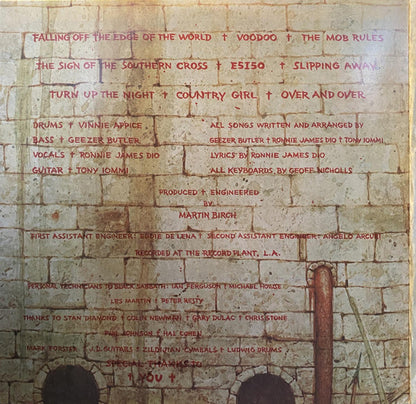 FALLING OFF THE EDGE OF THE WORLD † VOODOO † THE MOB RULES
THE SIGN OF THE SOUTHERN CROSS † E5150 † SLIPPING AWAY
TURN UP THE NIGHT † COUNTRY GIRL † OVER AND OVER
DRUMS † VINNIE APPICE
BASS † GEEZER BUTLER
VOCALS † RONNIE JAMES DIO
GUITAR † TONY IOMMI
ALL SONGS WRITTEN AND ARRANGED BY
GEEZER BUTLER † RONNIE JAMES DIO † TONY IOMMI
LYRICS BY RONNIE JAMES DIO
ALL KEYBOARDS BY GEOFF NICHOLLS
PRODUCED † ENGINEERED
BY
MARTIN BIRCH
FIRST ASSISTANT ENGINEER: EDDIE DELENA † SECOND ASSISTANT ENGINEER: ANGELO ARCURI
RECORDED AT THE RECORD PLANT, L.A.
PERSONAL TECHNICIANS TO BLACK SABBATH: IAN FERGUSON † MICHAEL HOWSE
LES MARTIN † PETER RESTY
THANKS TO STAN DIAMOND † COLIN NEWMAN † GARY DULAC † CHRIS STONE
PAUL JOHNSON † HAL COHEN
MARK FORSTER † J.D. GUITARS † ZILDJIAN CYMBALS † LUDWIG DRUMS
SPECIAL THANKS TO
† YOU †